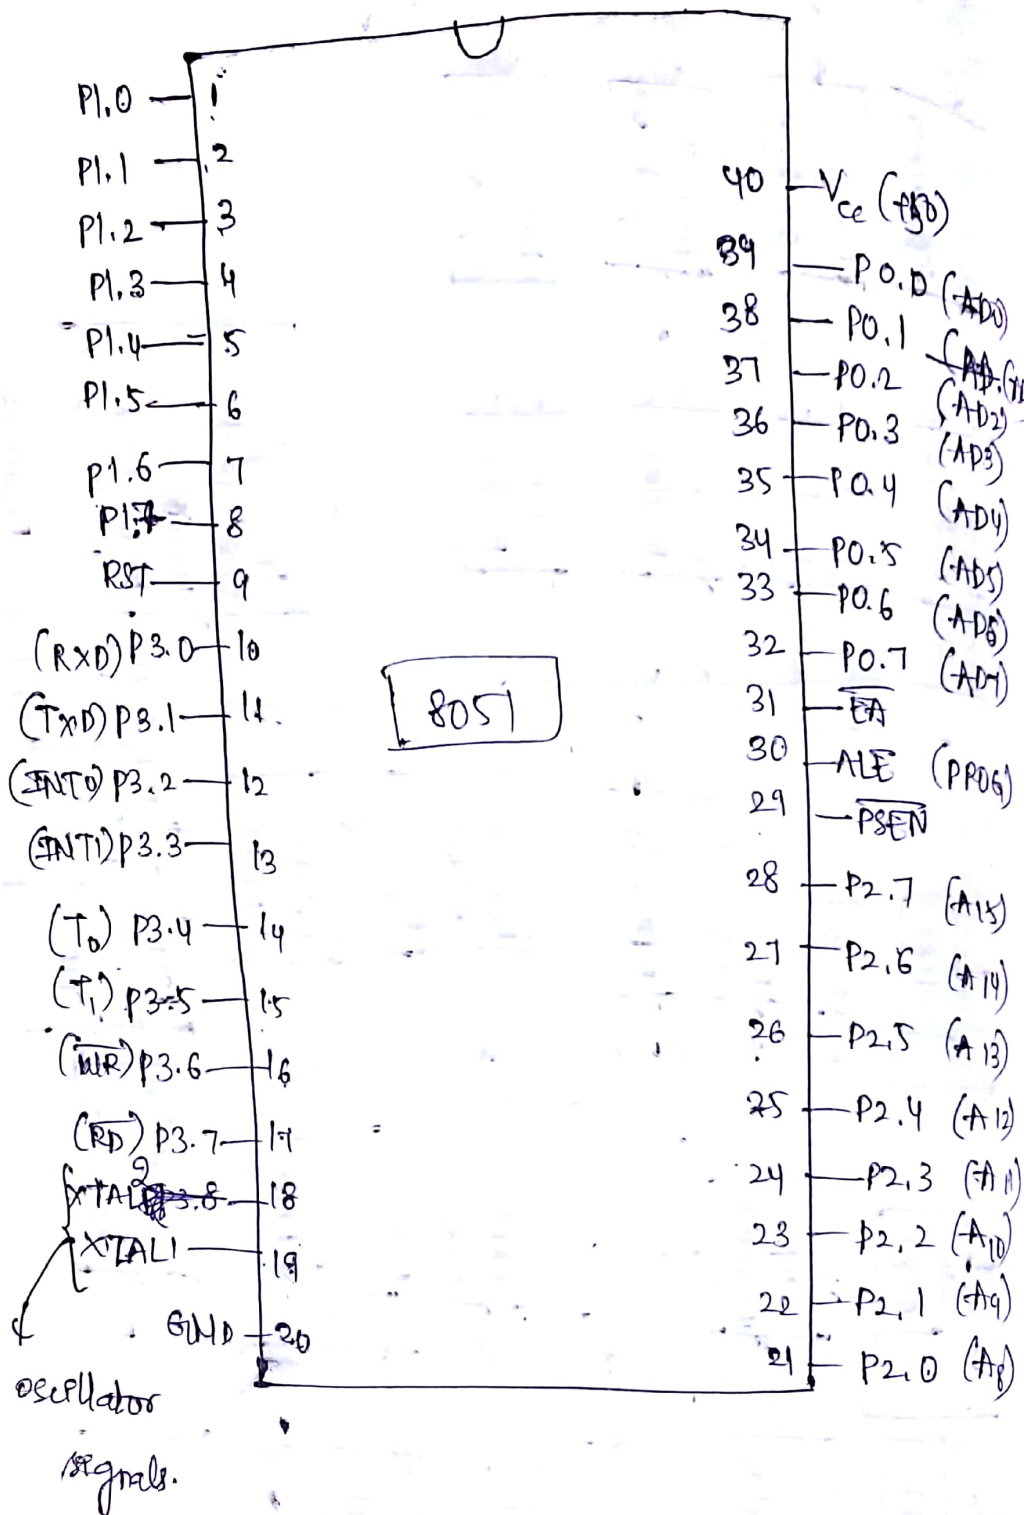 P1.0 1
P1.1 2
P1.2 3
P1.3 4
P1.4 5
P1.5 6
P1.6 7
P1.7 8
RST 9
(RXD) P3.0 10
(TXD) P3.1 11
(INT0) P3.2 12
(INT1) P3.3 13
(T0) P3.4 14
(T1) P3.5 15
(W̅R̅) P3.6 16
(R̅D̅) P3.7 17
XTAL2 18
XTAL1 19
GND 20
oscillator
signals.
8051
40 Vcc
39 P0.0 (AD0)
38 P0.1
37 P0.2 (AD2)
36 P0.3 (AD3)
35 P0.4 (AD4)
34 P0.5 (AD5)
33 P0.6 (AD6)
32 P0.7 (AD7)
31 E̅A̅
30 ALE (PROG)
29 P̅S̅E̅N̅
28 P2.7 (A15)
27 P2.6 (A14)
26 P2.5 (A13)
25 P2.4 (A12)
24 P2.3 (A11)
23 P2.2 (A10)
22 P2.1 (A9)
21 P2.0 (A8)